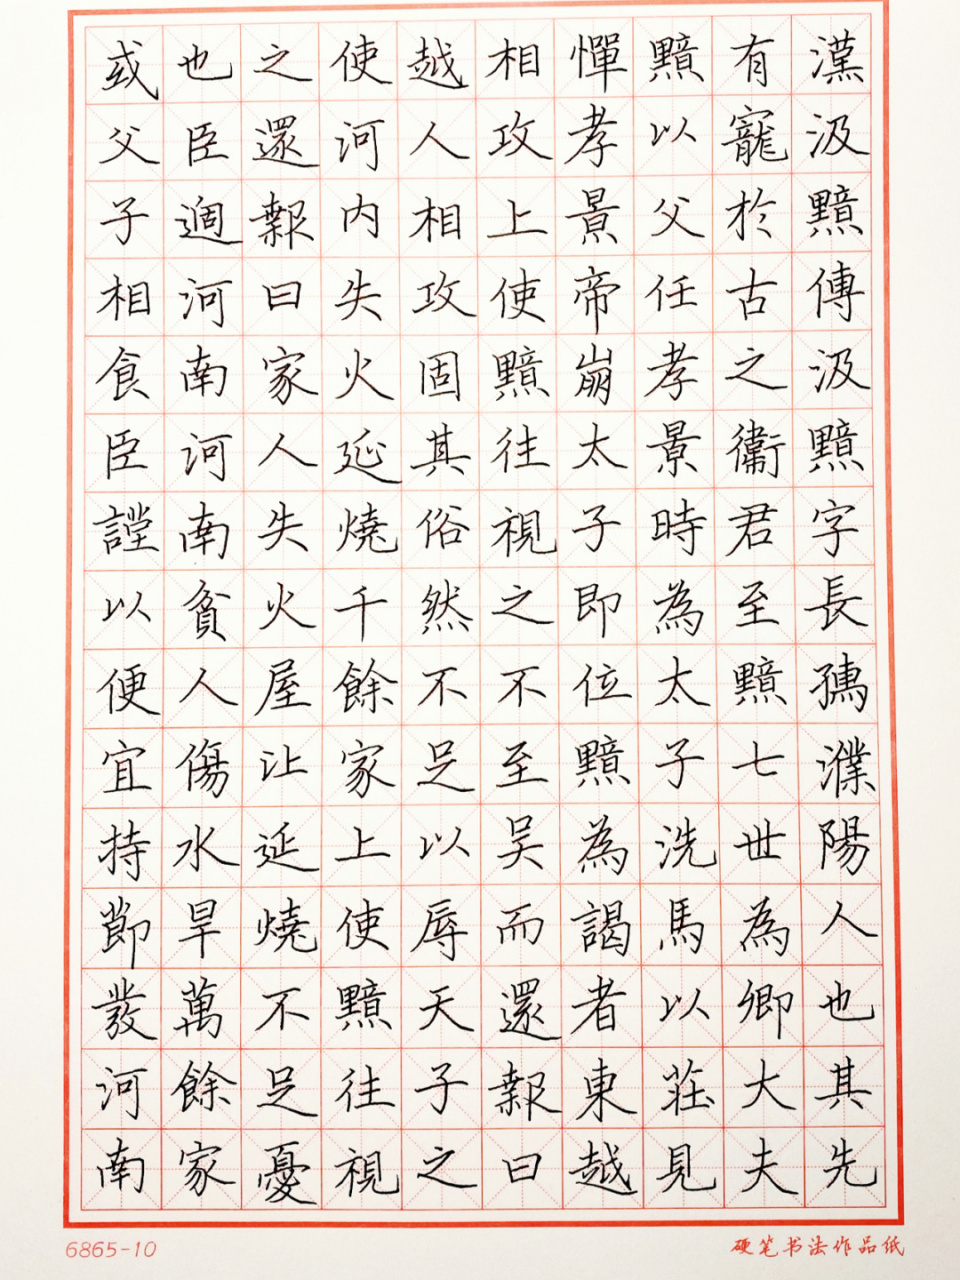 漢汲黯傳汲黯字長孺濮陽人也其先
有寵於古之衛君至黯七世為卿大夫
黯以父任孝景時為太子洗馬以莊見
憚孝景帝崩太子即位黯為謁者東越
相攻上使黯往視之不至吴而還報曰
越人相攻固其俗然不足以辱天子之
使河内失火延燒千餘家上使黯往視
之還報曰家人失火屋让延燒不足憂
也臣過河南河南貧人傷水旱萬餘家
或父子相食臣謹以便宜持節發河南
6865-10
硬笔书法作品纸